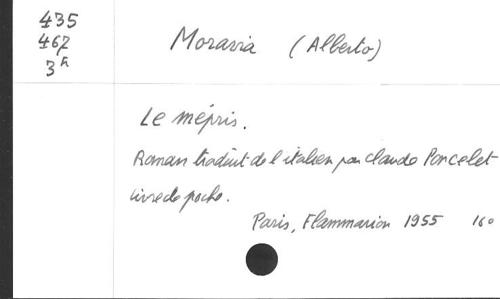 435
467
3A
Moravia (Alberto)
Le mépris.
Roman traduit de l'italien par Claude Poncelet
Livre de poche.
Paris, Flammarion 1955 160